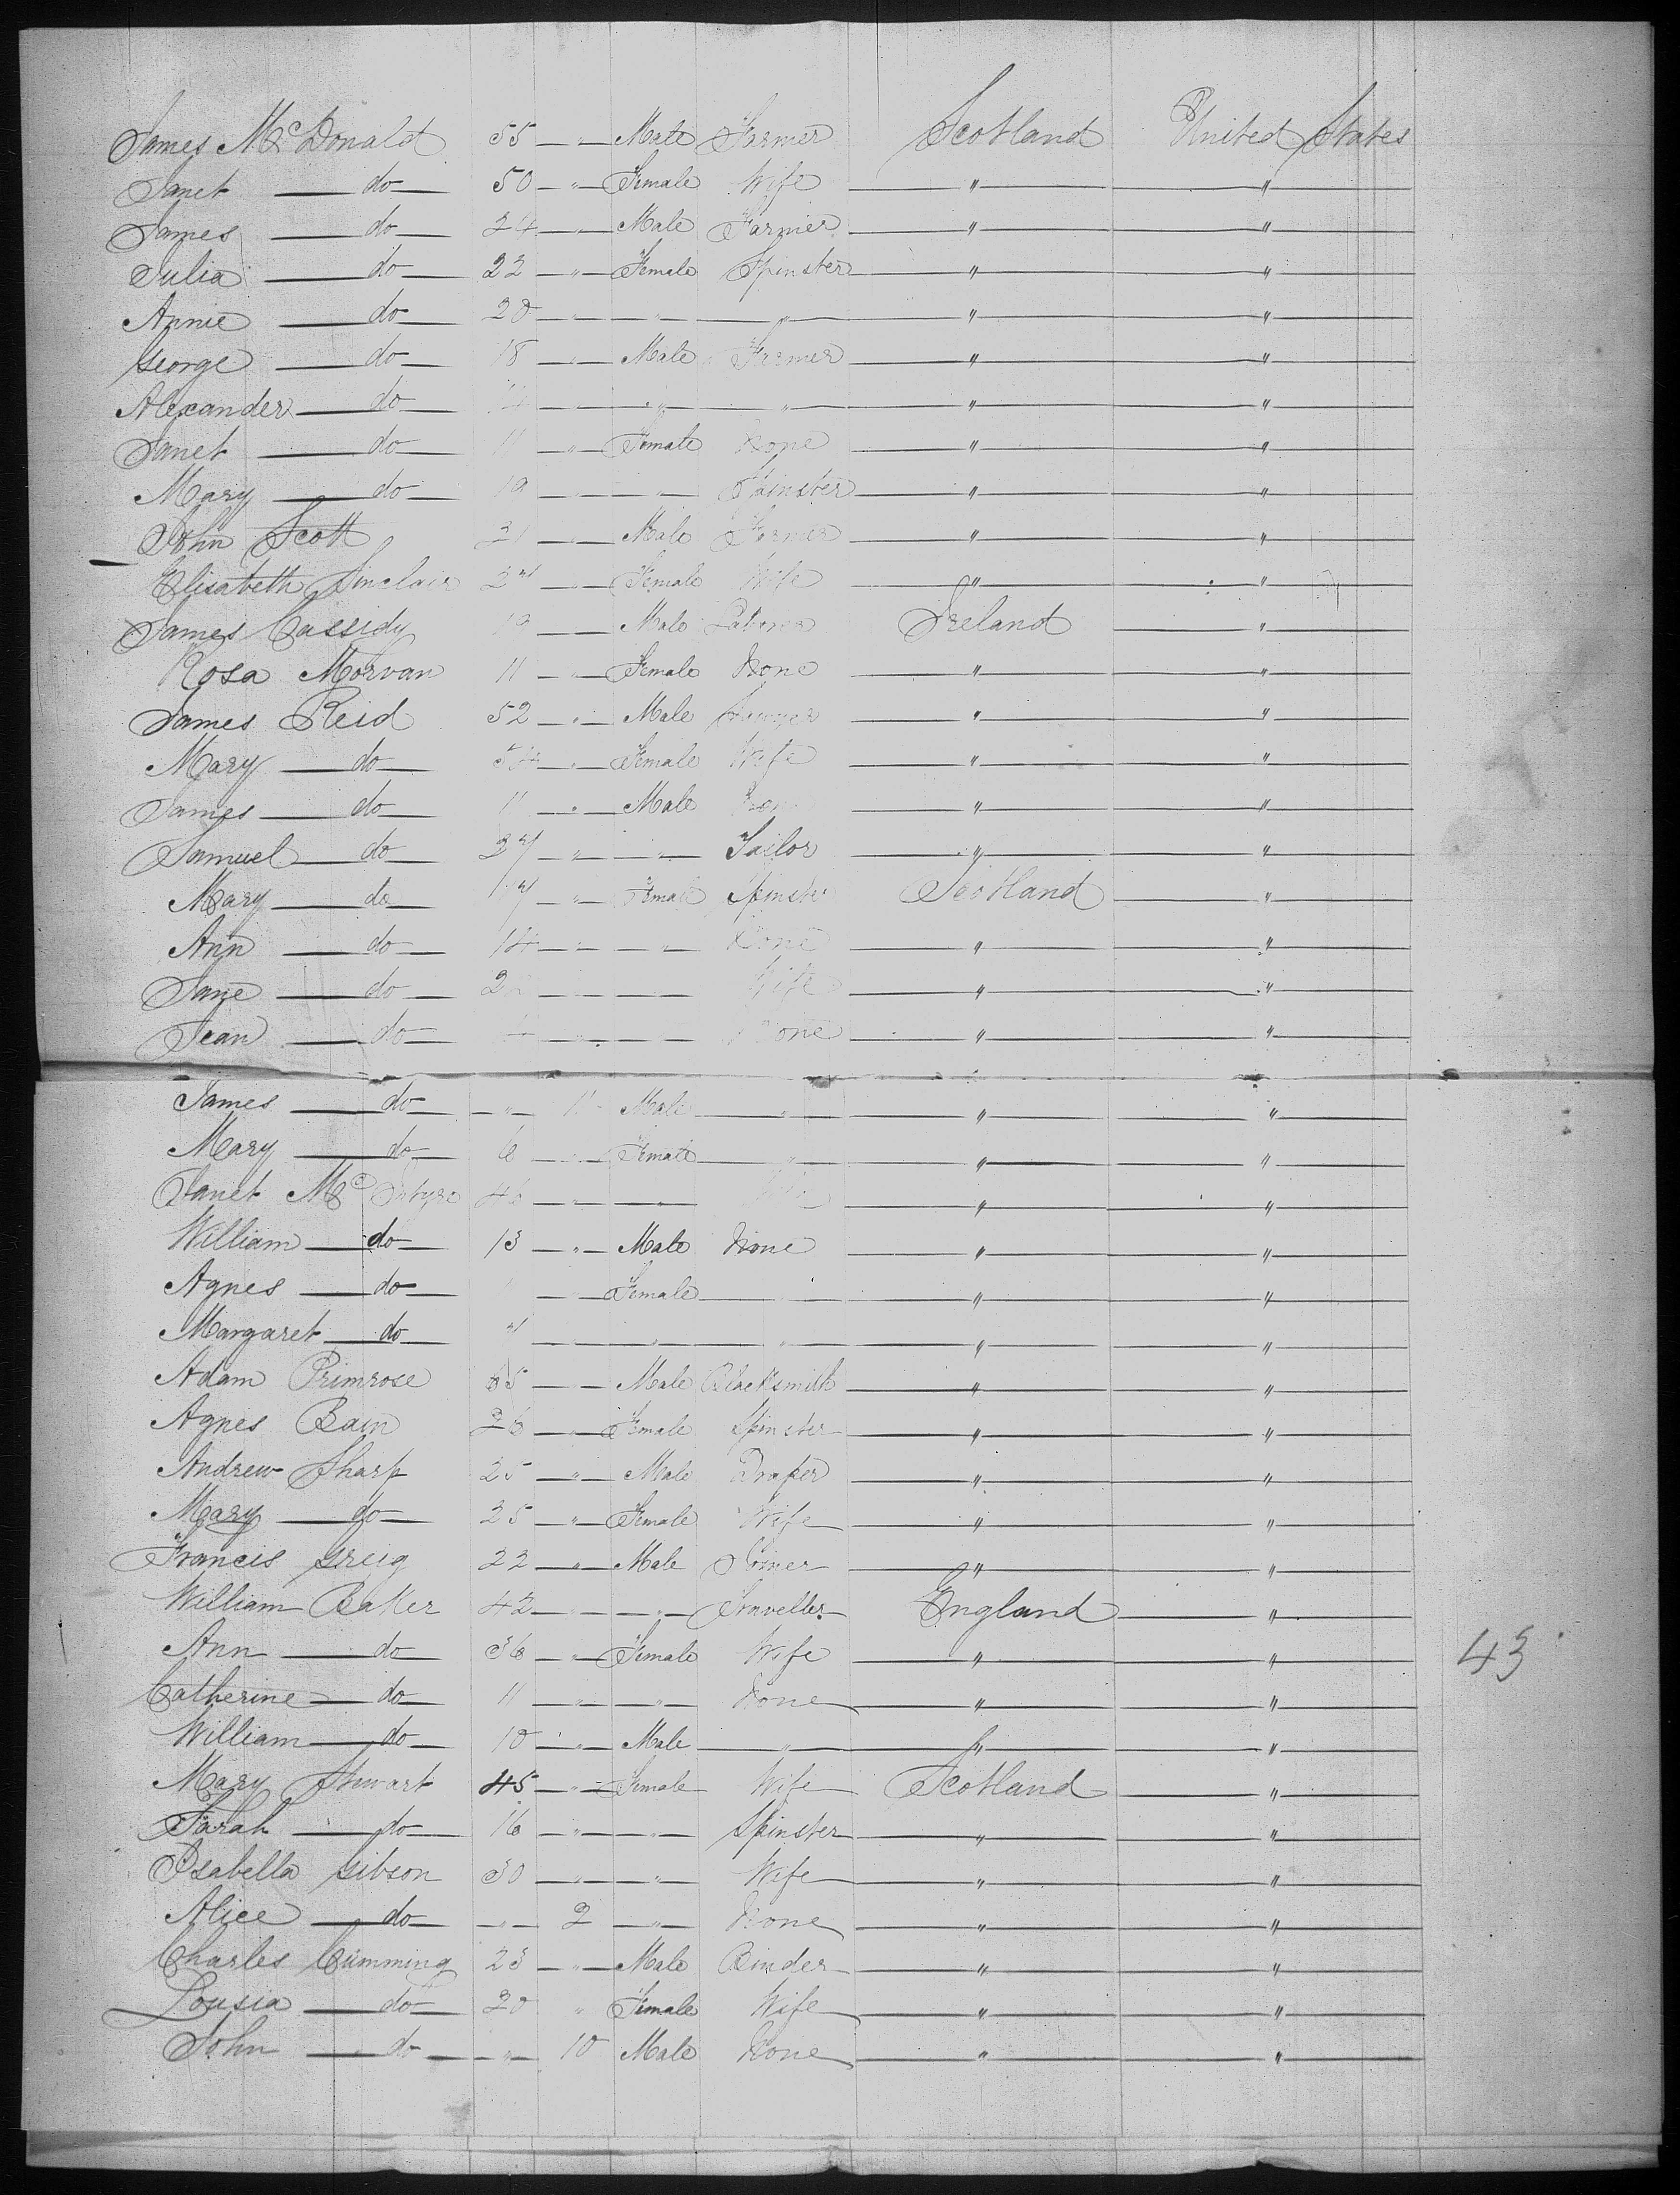 James McDonald 55 " Male Farmer Scotland United States
Janet do 50 " Female Wife " "
James do 24 " Male Farmer " "
Julia do 22 " Female Spinster " "
Annie do 20 " " " " "
George do 18 " Male Farmer " "
Alexander do 14 " " " " "
Janet do 11 " Female None " "
Mary do 19 " " Spinster " "
John Scott 31 " Male Farmer " "
Elisabeth Sinclair 27 " Female Wife " "
James Cassidy 19 " Male Laborer Ireland "
Rosa Morvan 11 " Female None " "
James Reid 52 " Male Sawyer " "
Mary do " Female Wife " "
James do 11 " Male None " "
Samuel do 27 " " Tailor " "
Mary do 17 " Female Spinster Scotland "
Ann do 14 " " None " "
Jane do " " Wife " "
Jean do " " None " "
James do " 11 Male " " "
Mary do 6 " Female " " "
Janet McIntyre " " " "
William do 13 " Male None " "
Agnes do " Female " " "
Margaret do 7 " " " " "
Adam Primrose 65 " Male Blacksmith " "
Agnes Bain 26 " Female Spinster " "
Andrew Sharp 25 " Male Draper " "
Mary do 25 " Female Wife " "
Francis Greig 22 " Male Joiner " "
William Baker 42 " " Traveller England "
Ann do 36 " Female Wife " "
Catherine do 11 " " None " "
William do 10 " Male " " "
Mary Stewart 45 " Female Wife Scotland "
Sarah do 16 " " Spinster " "
Isabella Gibson 30 " " Wife " "
Alice do " 2 " None " "
Charles Cumming 23 " Male Binder " "
Lousia do 20 " Female Wife " "
John do " 10 Male None " "
43